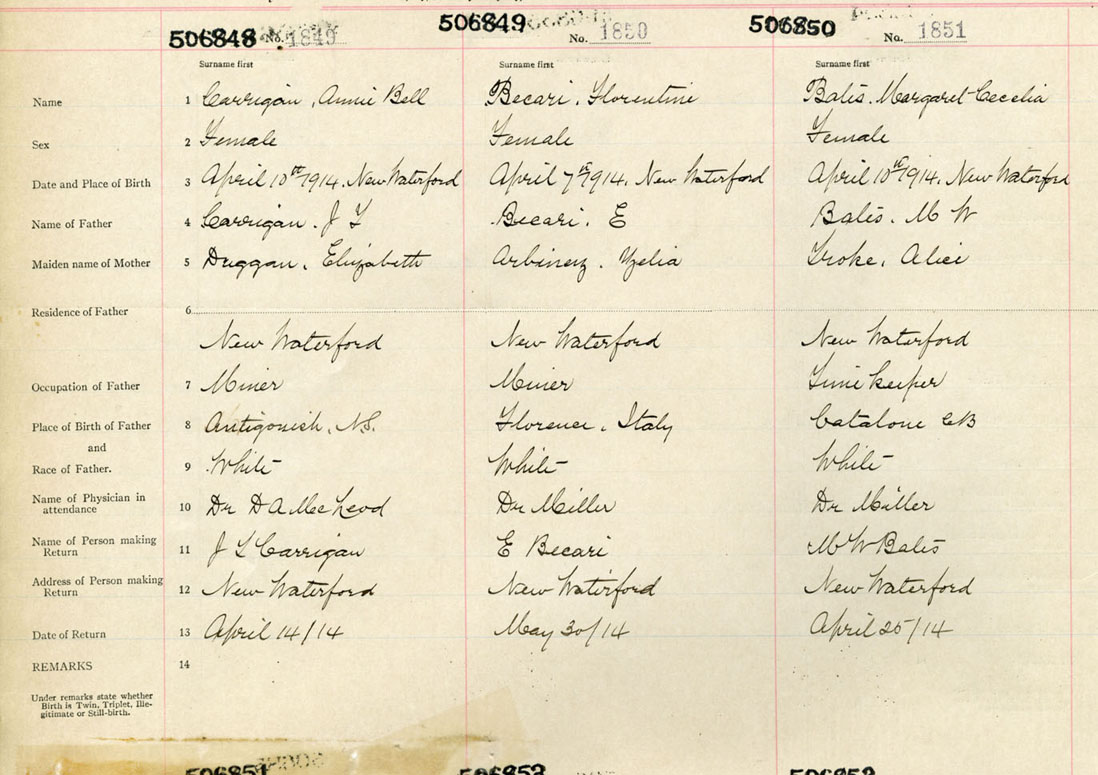 506848 No. 1849 506849 No. 1850 506850 No. 1851
Surname first Surname first Surname first
Name 1 Carrigan, Annie Bell Becari, Florentine Bates. Margaret Cecelia
Sex 2 Female Female Female
Date and Place of Birth 3 April 10th 1914. New Waterford April 7th 1914. New Waterford April 10th 1914. New Waterford
Name of Father 4 Carrigan. J L Becari. E Bates. M W
Maiden name of Mother 5 Duggan, Elizabeth Troke, Alice
Residence of Father 6
New Waterford New Waterford New Waterford
Occupation of Father 7 Miner Miner Time keeper
Place of Birth of Father 8 Antigonish, N.S. Florence, Italy Catalone CB
and
Race of Father. 9 White White White
Name of Physician in
attendance 10 Dr D A McLeod Dr Miller Dr Miller
Name of Person making
Return 11 J L Carrigan E Becari M W Bates
Address of Person making
Return 12 New Waterford New Waterford New Waterford
Date of Return 13 April 14/14 May 30/14 April 25/14
REMARKS 14
Under remarks state whether
Birth is Twin, Triplet, Ille-
gitimate or Still-birth.
506851